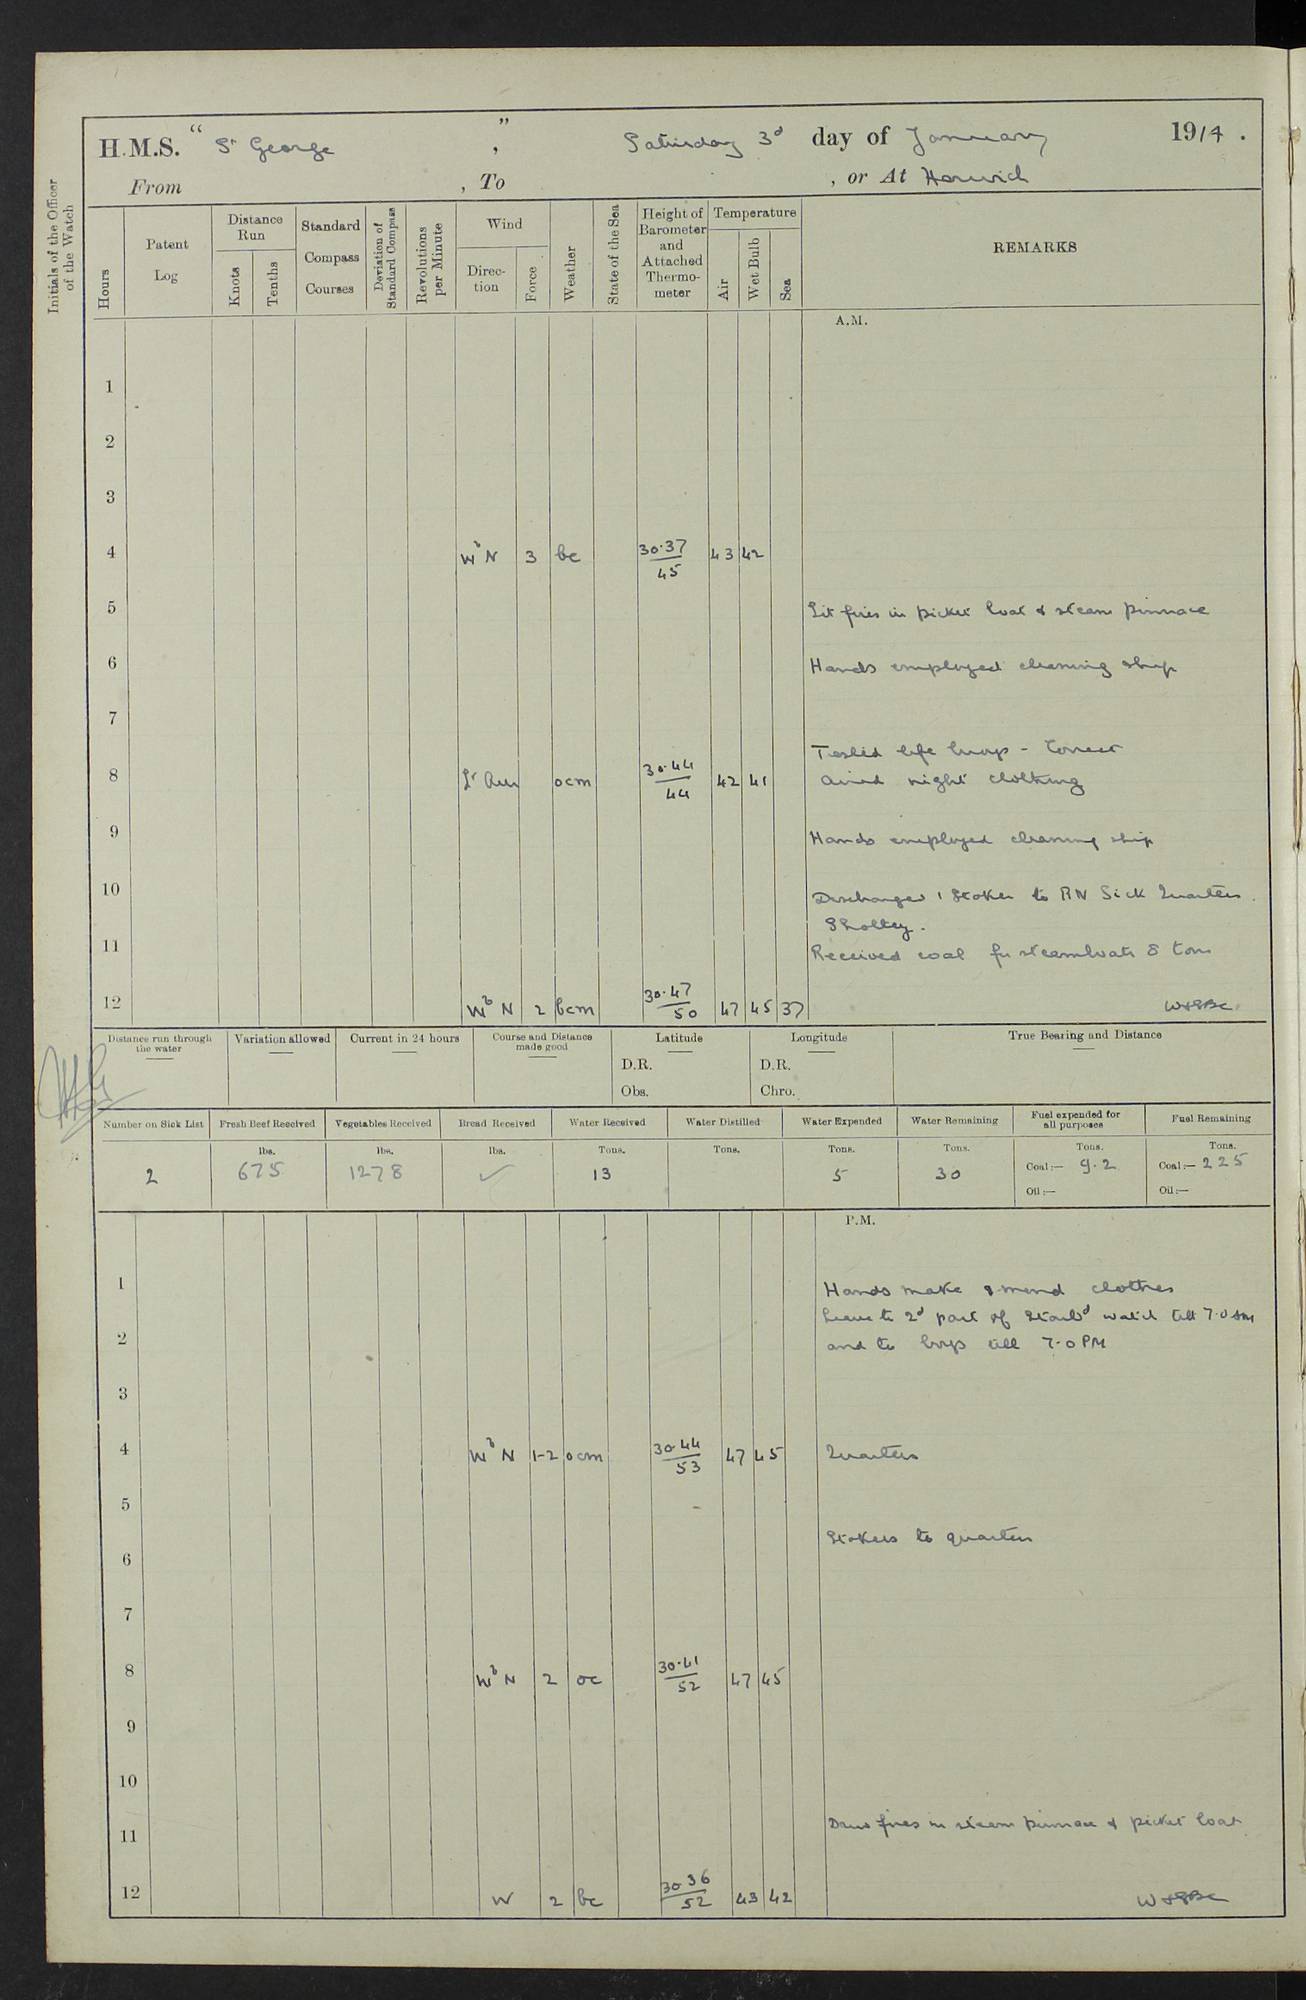 H.M.S. "St George", Saturday 3d day of January 1914.
From , To , or At Harwich
Initials of the Officer of the Watch
Hours
Patent Log
Distance Run
Knots
Tenths
Standard Compass Courses
Deviation of Standard Compass
Revolutions per Minute
Wind
Direction
Force
Weather
State of the Sea
Height of Barometer and Attached Thermometer
Temperature
Air
Wet Bulb
Sea
REMARKS
A.M.
1
2
3
4 WbN 3 bc 30.37/45 43 42
5 Lit fires in picket boat & steam pinnace
6 Hands employed cleaning ship
7
Tested life buoys - Correct
8 Lt Airs ocm 30.44/44 42 41 Aired night clothing
9 Hands employed cleaning ship
10 Discharged 1 Stoker to RN Sick Quarters.
Shotley.
11 Received coal for steamboats 8 tons
12 WbN 2 bcm 30.47/50 47 45 37
Distance run through the water
Variation allowed
Current in 24 hours
Course and Distance made good
Latitude
D.R.
Obs.
Longitude
D.R.
Chro.
True Bearing and Distance
Number on Sick List
2
Fresh Beef Received
lbs.
675
Vegetables Received
lbs.
1278
Bread Received
lbs.
✓
Water Received
Tons.
13
Water Distilled
Tons.
Water Expended
Tons.
5
Water Remaining
Tons.
30
Fuel expended for all purposes
Tons.
Coal:— 9.2
Oil:—
Fuel Remaining
Tons.
Coal:— 225
Oil:—
P.M.
1 Hands make & mend clothes
Leave to 2d part of Starbd watch till 7.0 AM
2 and to boys till 7.0 PM
3
4 WbN 1-2 ocm 30.44/53 47 45 Quarters
5
Stokers to quarters
6
7
8 WbN 2 oc 30.41/52 47 45
9
10
11 Drew fires in steam pinnace & picket boat
12 W 2 bc 30.36/52 43 42